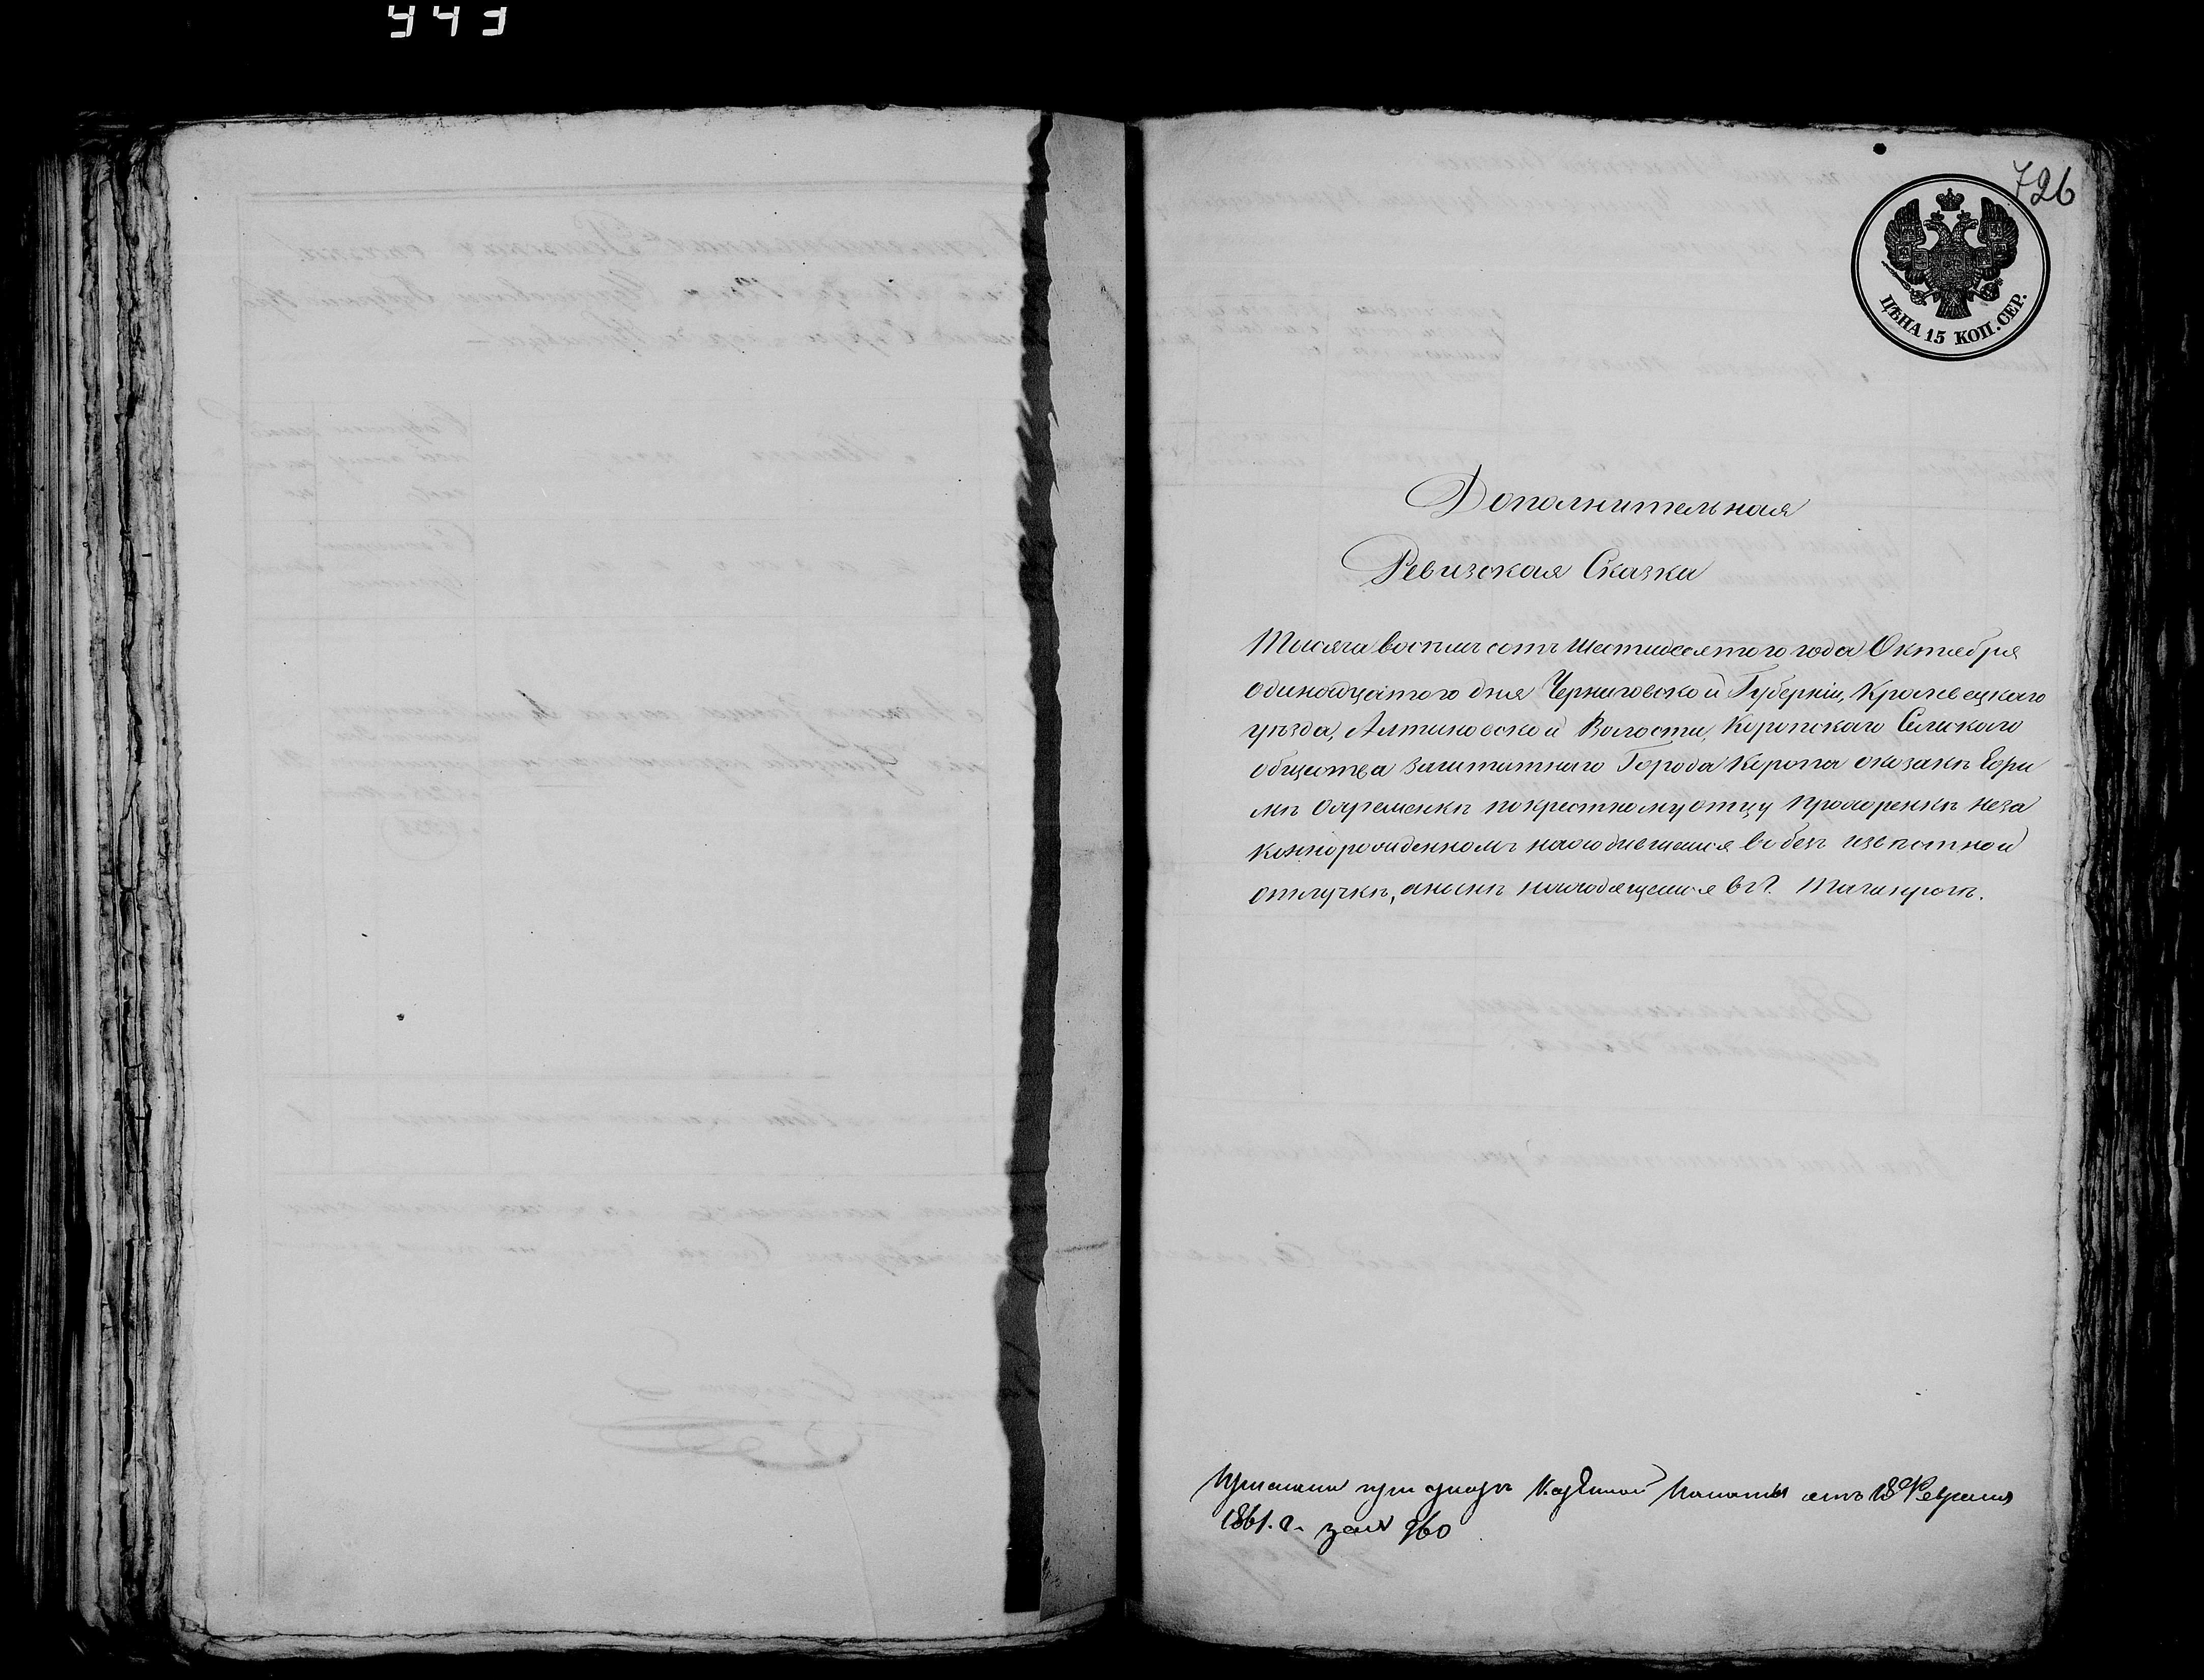 443
726
ЦѢНА 15 КОП. СЕР.
Дополнительная
Ревизская Сказка
Тысяча восемь сотъ шестидесятого года Октября
одинадцатого дня Черниговской Губерніи, Кролевецкаго
уѣзда, Алтиновской Волости, Коропскаго Селскаго
общества Заштатнаго Города Коропа оказакѣ
покрестному отцу неза
коннорожденномъ находившемся во безъ извѣстной
отлучкѣ, анынѣ находящемся в Г. Таганрогѣ.
при указѣ Казенной Палаты отъ 18 Февраля
1861. г. за № 960